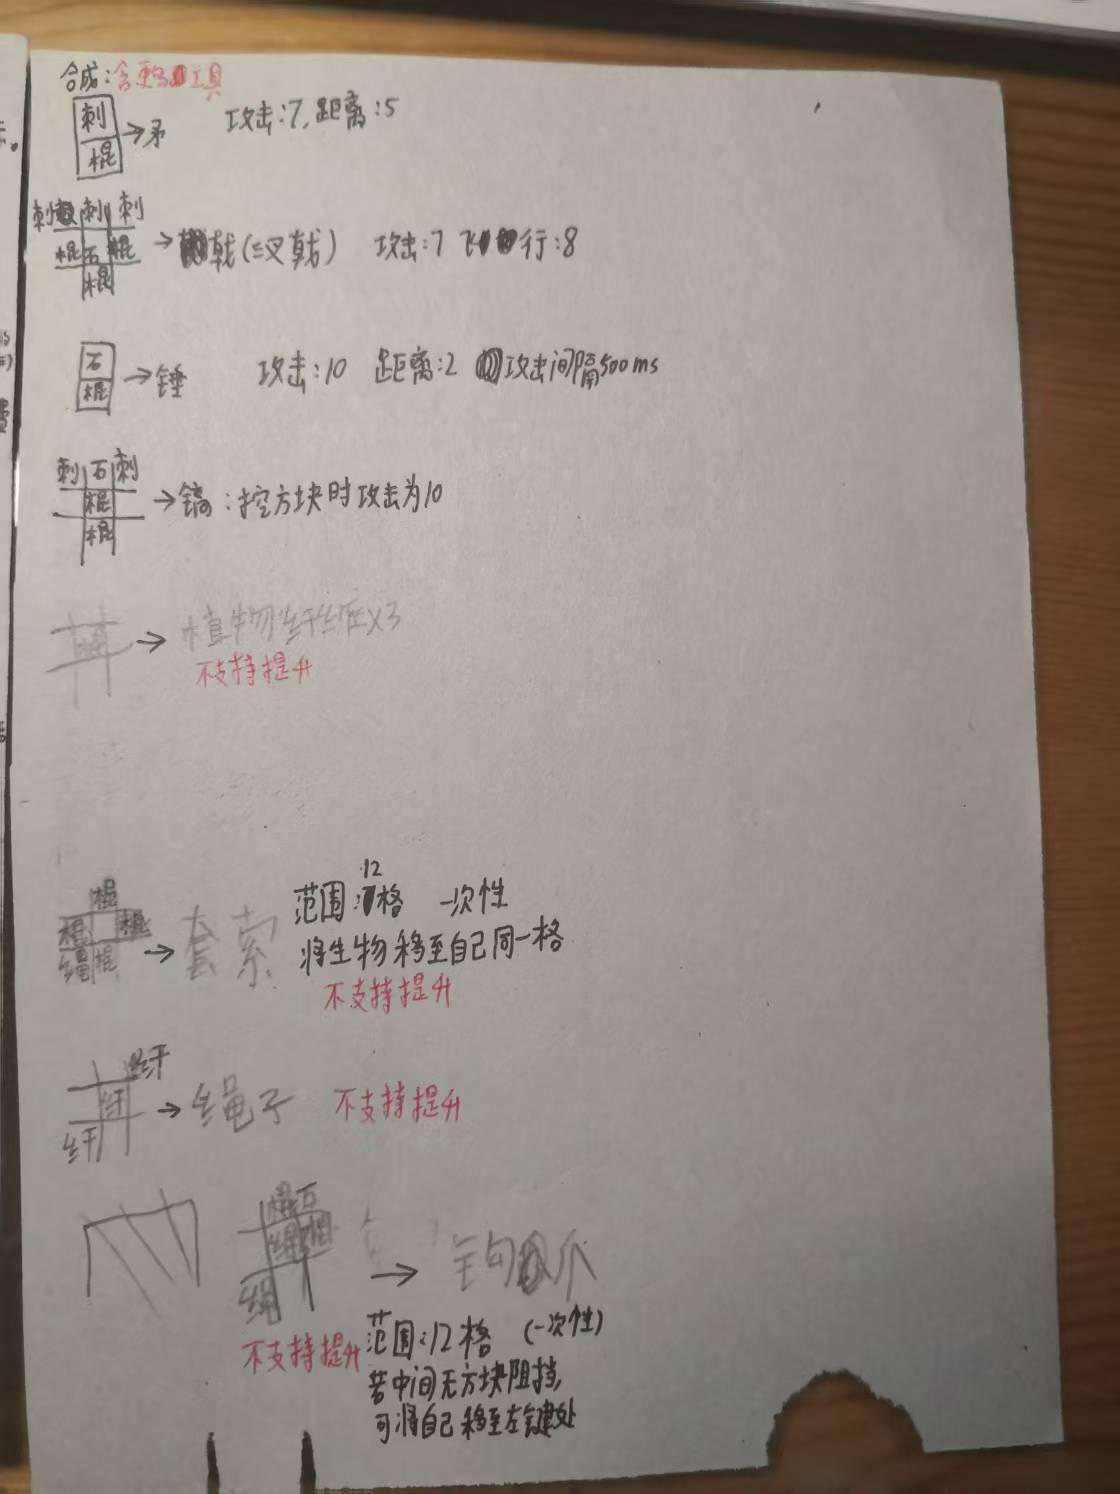 合成:含更多工具
刺
棍
→矛 攻击:7,距离:5
刺 刺 刺
棍 石 棍
棍
→戟(三叉戟) 攻击:7 飞行:8
石
棍
→锤 攻击:10 距离:2 攻击间隔500ms
刺 石 刺
棍
棍
→镐:挖方块时攻击为10
→植物纤维x3
不支持提升
棍
棍 棍
绳 棍
→套索
范围:12格 一次性
将生物移至自己同一格
不支持提升
纤
纤
纤
→绳子 不支持提升
棍 石
绳 棍
绳
→钩爪
不支持提升
范围:12格 (一次性)
若中间无方块阻挡,
可将自己移至左键处